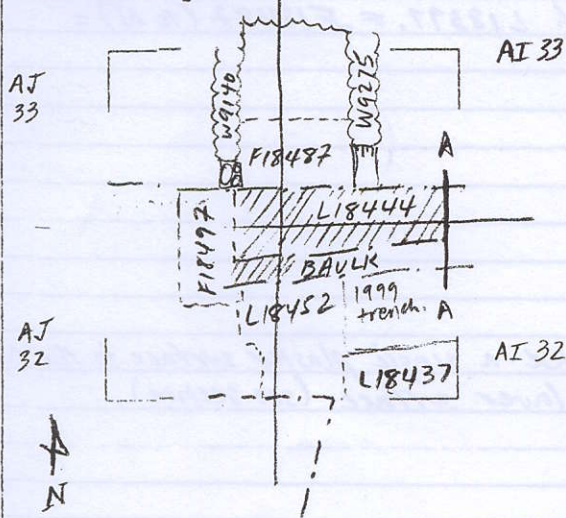 AI 33
AJ
33
W9140
W9275
F18487
A
L18444
F18497
BAULK
L18452
1999
trench.
A
AJ
32
AI 32
L18437
N